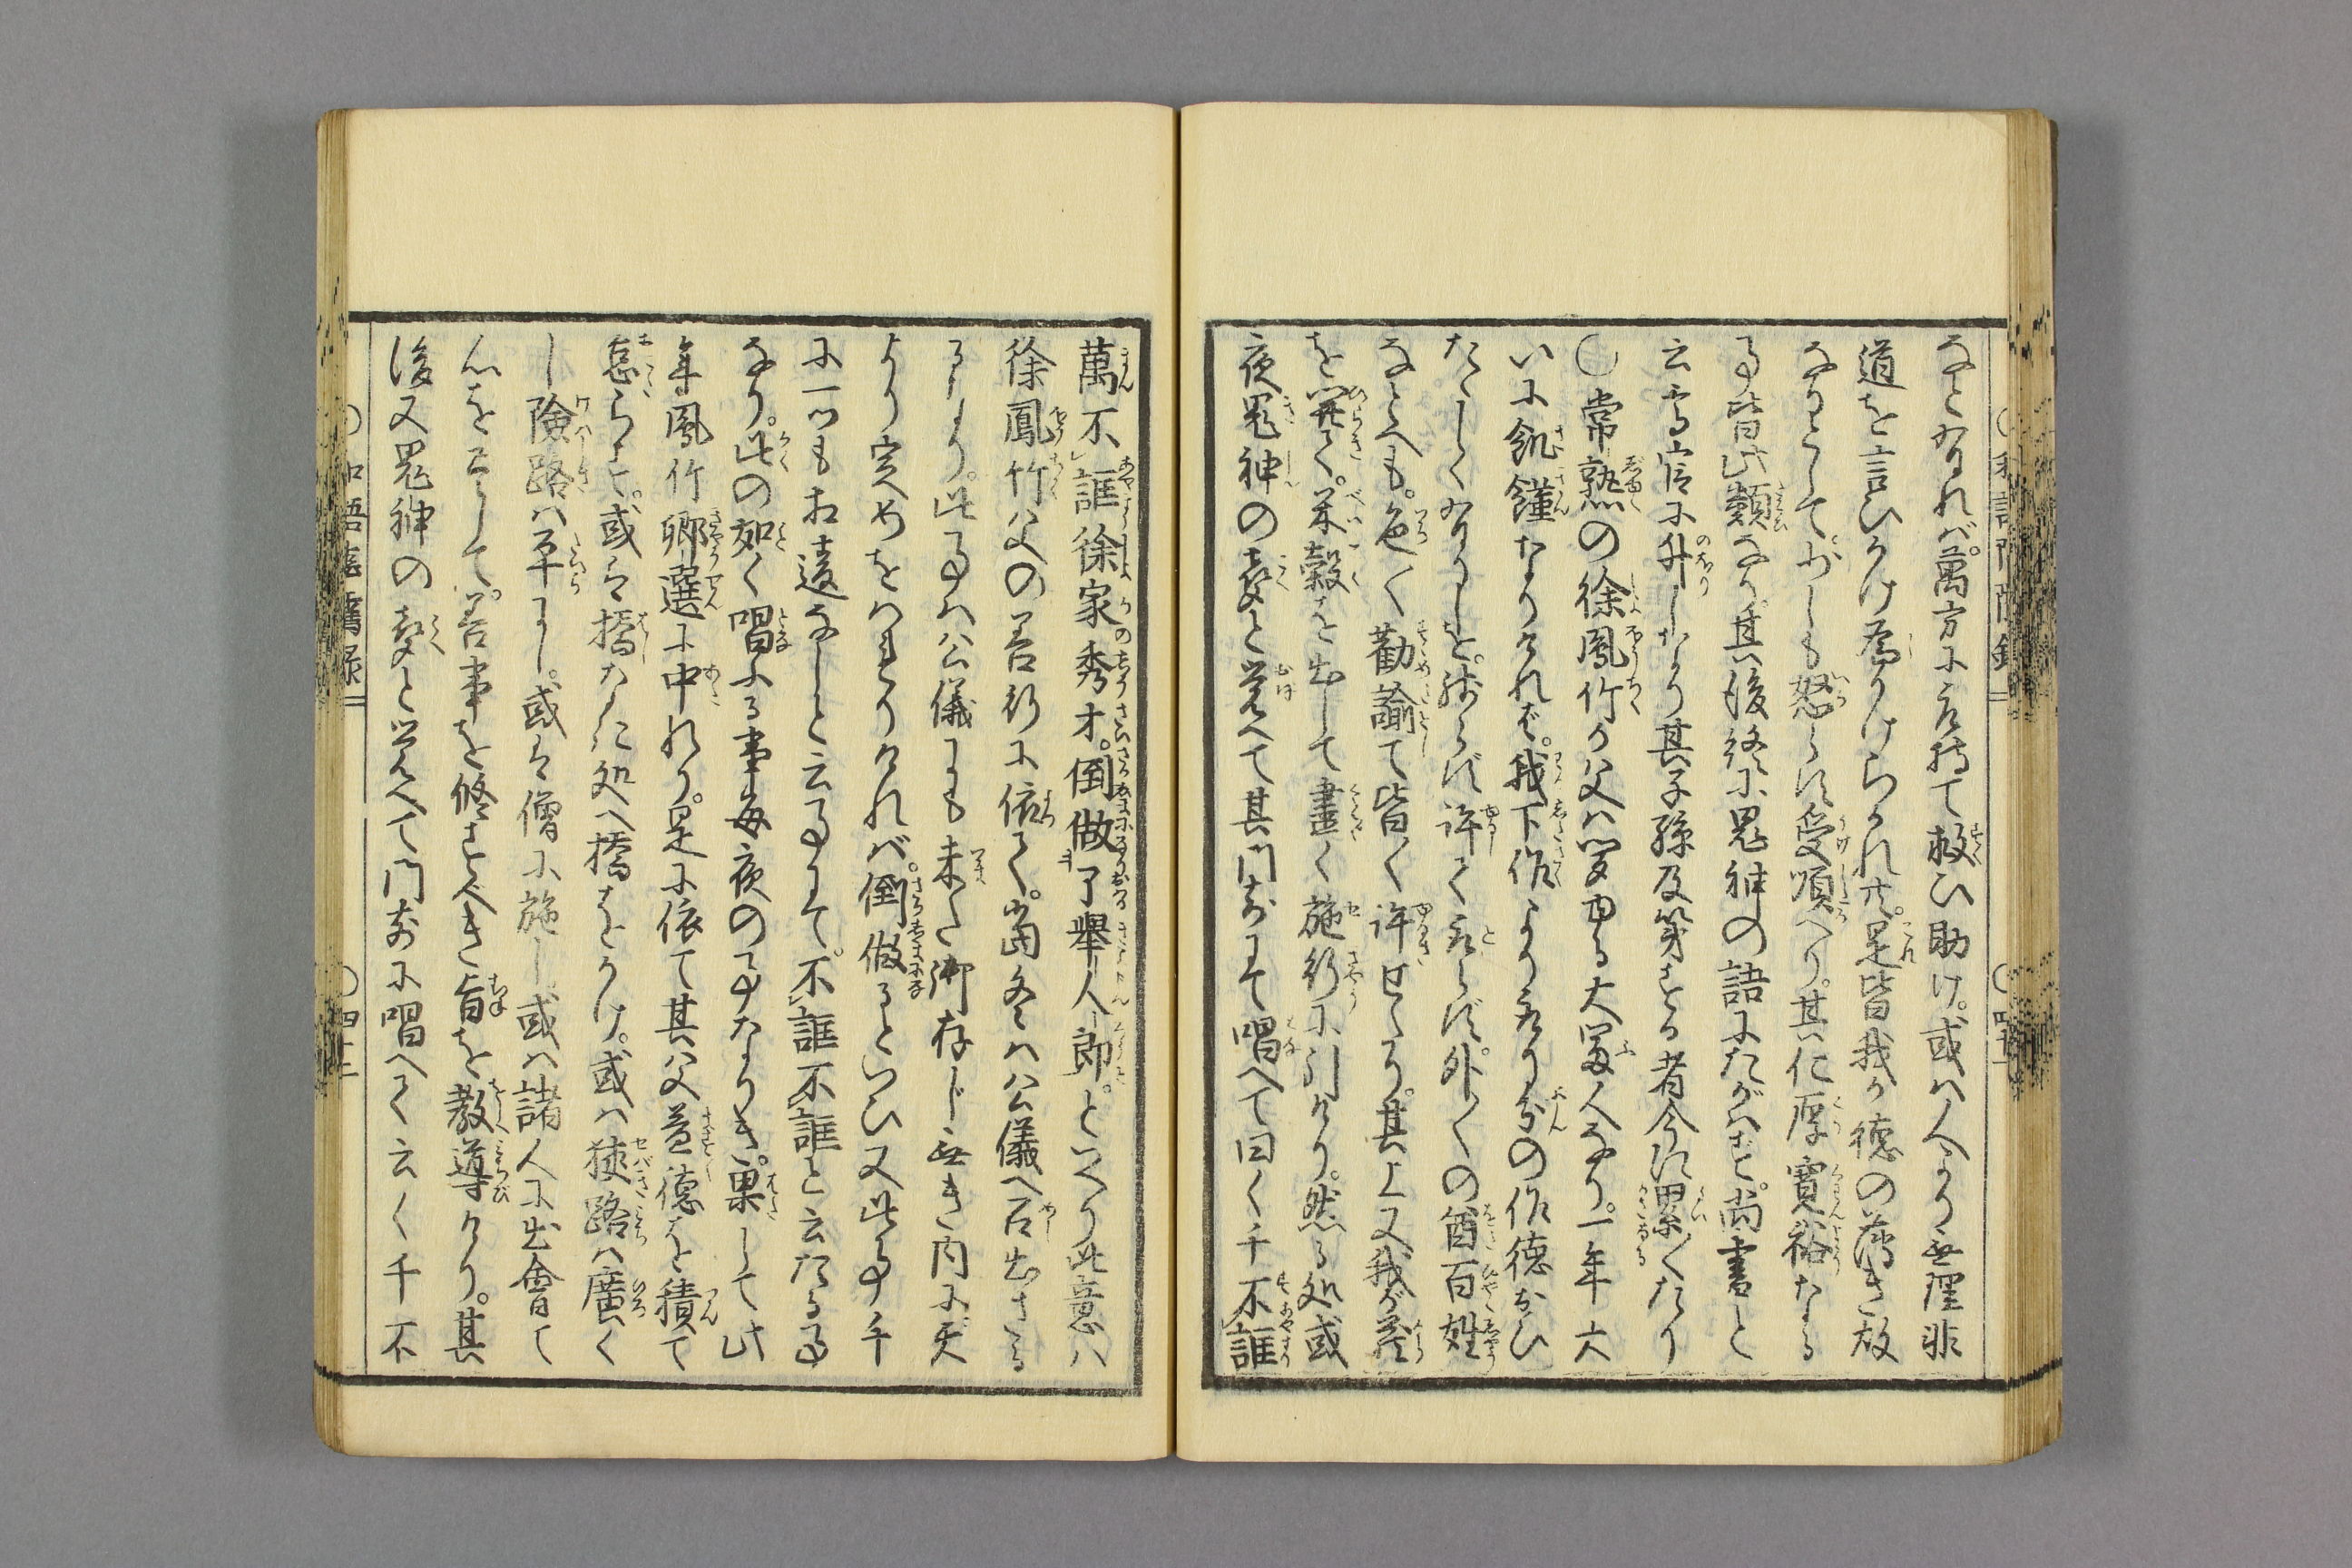 なとなれバ。萬方に心持て救ひ助け。或ハ人より無理非
道を言ひかけ辱かけらるれ共。是皆我か徳の薄き故
なりとして。少しも怒らず受順へり。其仁厚寛裕なる
事皆此類なり。其後終に鬼神の語にたがはず。尚書と
云高官に升しなり其子孫及第する者今に累〻たり
〇常熟の徐鳳竹が父ハ聞ゆる大冨人なり。一年大
いに飢饉なりけれど。我下作より取り分の作徳おひ
たゝしくなりしを。残らず許て取らず。外〻の酋百姓
なとへも。色〻勧諭て皆〻許せたり。其上又我が蔵
を開て。米穀を出して盡く施行に引けり。然る処或
夜鬼神の聲と覚へて其門前にて唱へて曰く千不誑
萬不誑徐家秀才。倒做了舉人郎。といへり此意ハ
徐鳳竹父の善行に依て。當冬ハ公儀へ召出さるゝ
るしなり。此事ハ公儀にも未た御存じ無き内に天
より定めをはりけれバ。倒做るといひ又此事千
に一つも相違なしと云事にて。不誑不誑と云たる事
なり。此の如く唱ふる事毎夜の事なりき。果して此
年鳳竹郷選に中れり。是に依て其父益徳を積て
怠らず。或は橋なき処へ橋をかけ。或ハ狹路ハ廣く
し險路ハ平にし。或は僧に施し或ハ諸人に出會て
心を尽して。善事を修すべき旨を教導けり。其
後又鬼神の聲と覚へて門前に唱へて云く千不
〇四十二
〇四十三